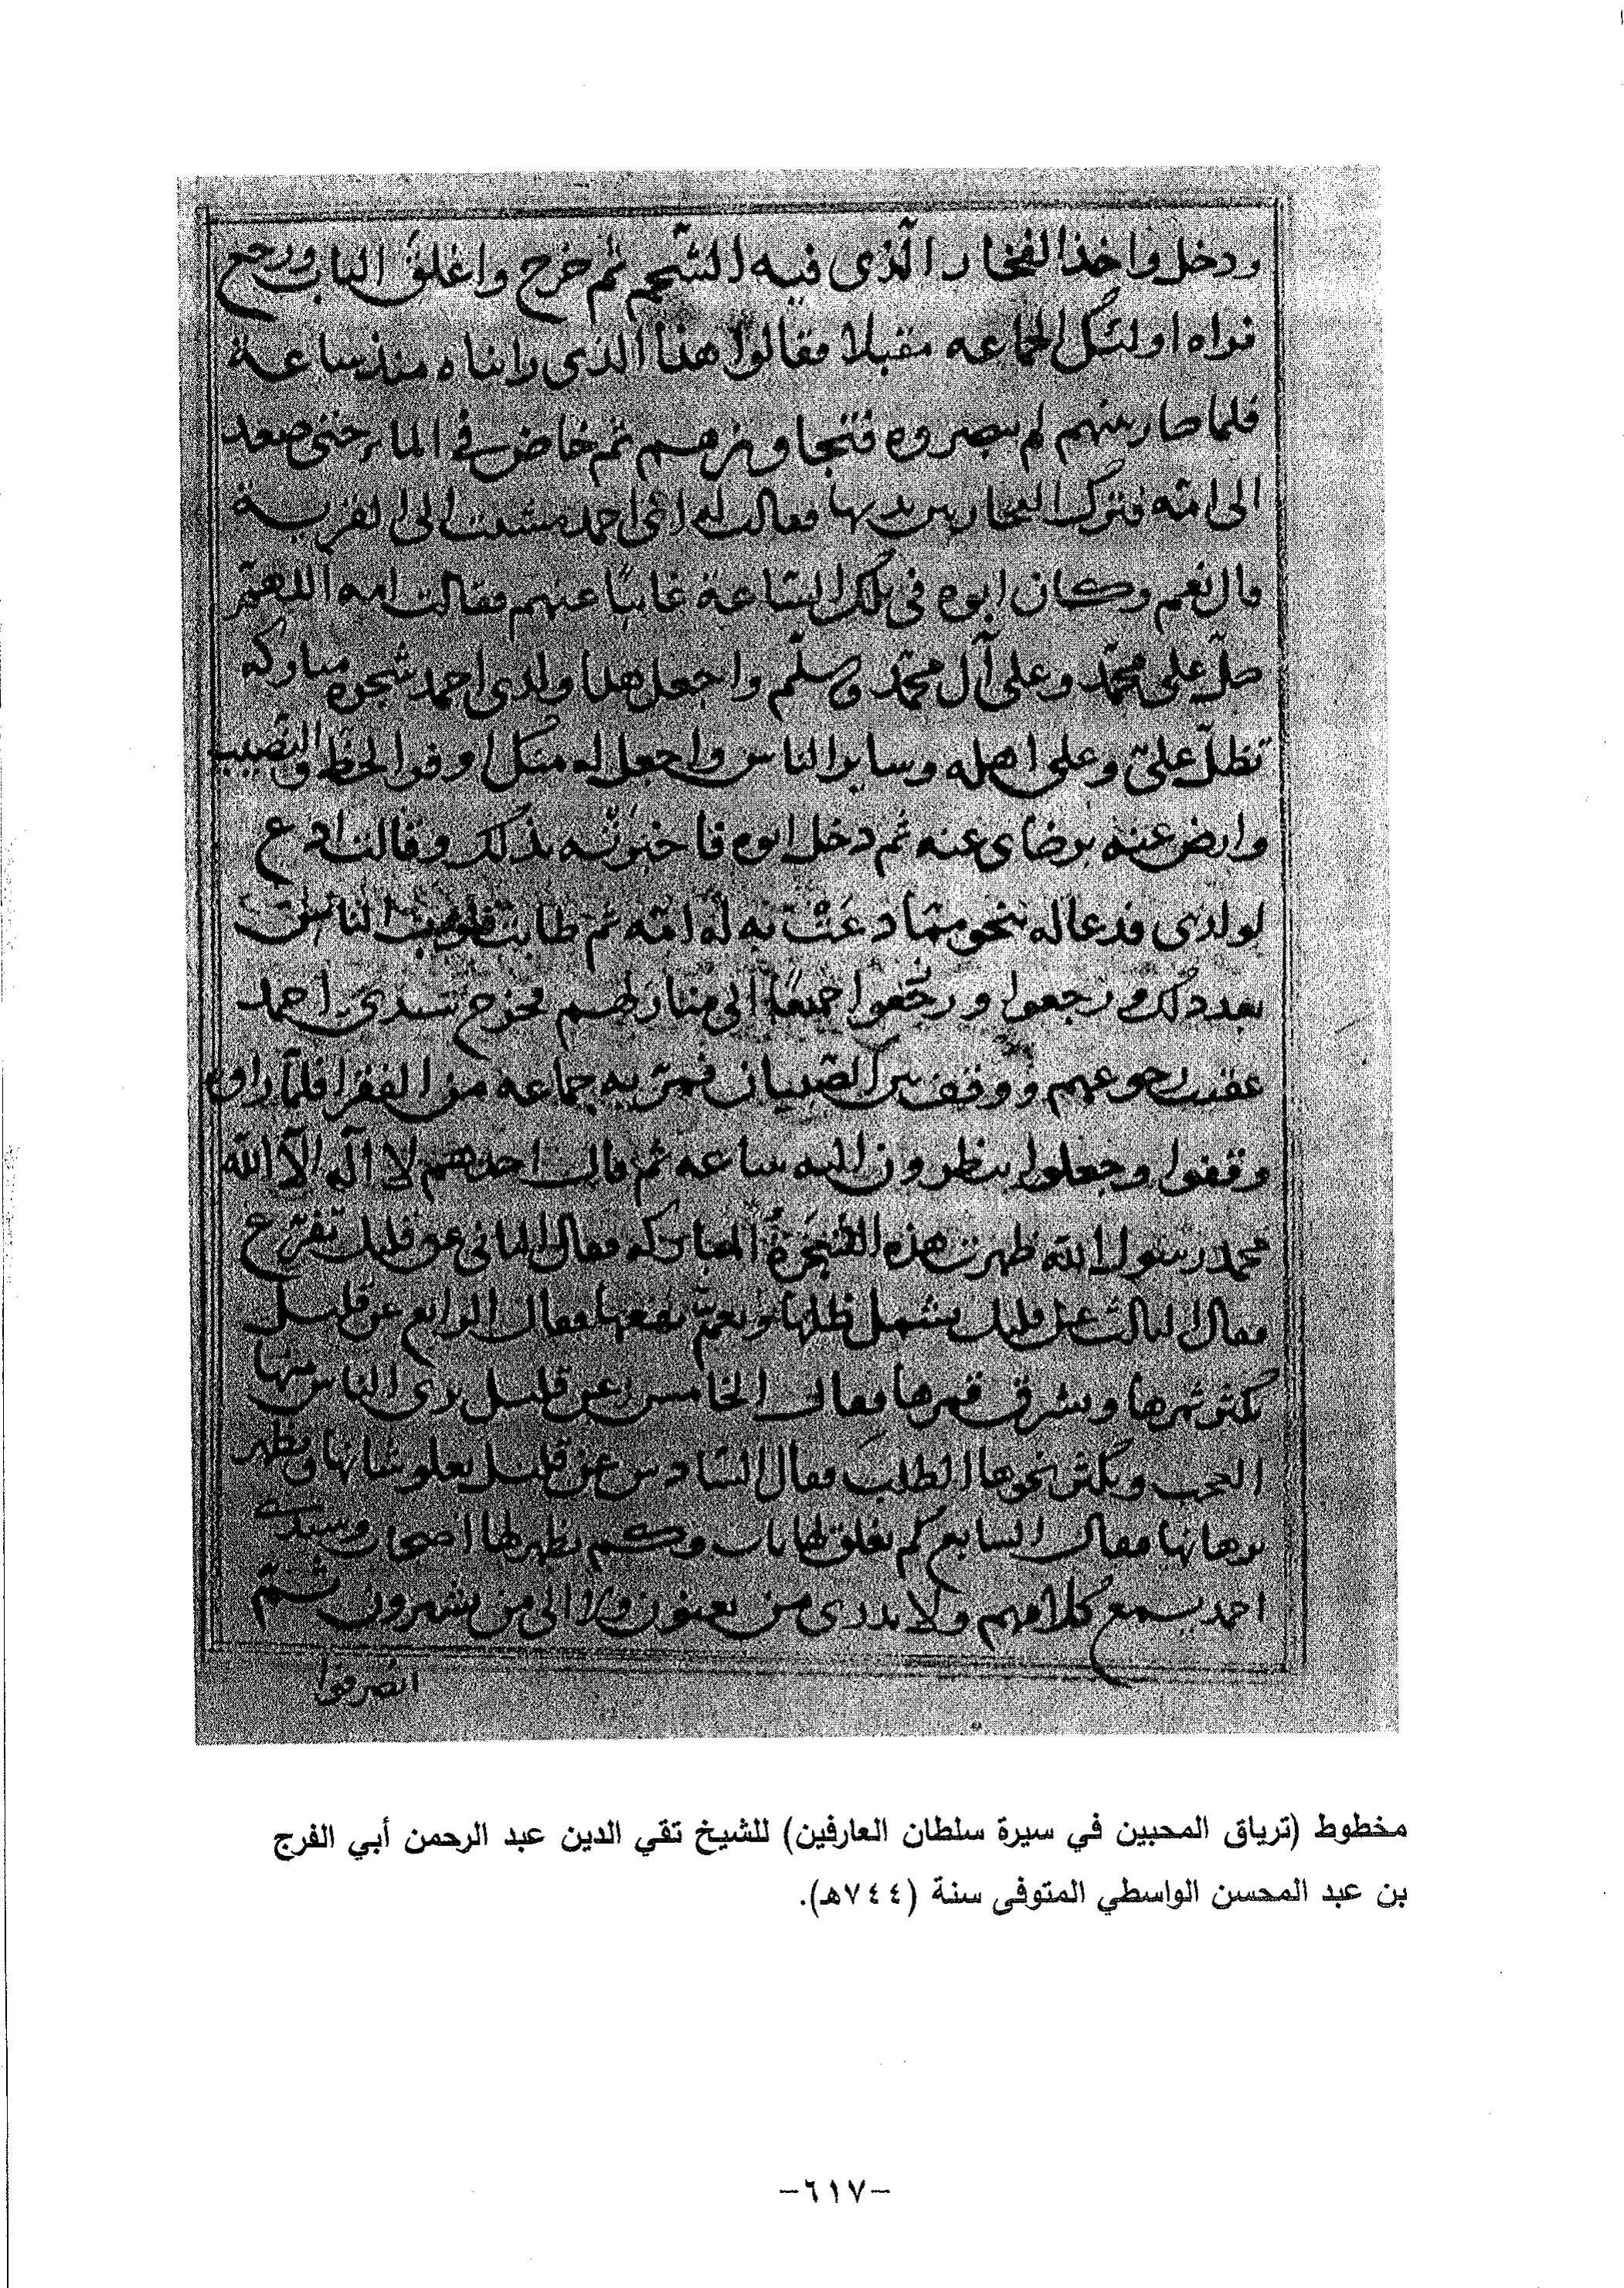 ودخل واخذ الفخار الّذى فيه الشّحم ثم خرج واغلق الباب ورجع
فراه اولئك الجماعه مقبلا فقالوا هذا الذى راناه منذ ساعة
فلما صار بينهم لم يبصروه فتجاوزهم ثم خاض فى الماء حتى صعد
الى امّه فترك الفخار بين يديها فقالت له اى احمد مشيت الى القرية
قال نعم وكان ابوه فى تلك السّاعة غايبًا عنهم فقالت امه اللهمّ
صلّ على محمّد وعلى آل محمّد وسلّم واجعل هذا ولدى احمد شجره مباركه
تظلّ علىّ وعلى اهله وساير الناس واجعل له منك اوفر الحظّ والنّصيب
وارض عنه برضاى عنه ثم دخل ابوه فاخبرتّه بذلك وقالت ادع
لولدى فدعا له بنحو ممّا دعَتْ به له امّه ثم طابت قلوب الناس
بعد ذلك ورجعوا جميعًا الى منازلهم فخرج سيدى احمد
عقيب رجوعهم ووقف بين الصّبيان فمرّ به جماعة من الفقرا فلمّا راوه
وقفوا وجعلوا ينظرون اليه ساعه ثم قال احدهم لا اله الّا الله
محمد رسول الله ظهرت هذه الشّجرة المباركه فقال الثانى عن قليل تفرّع
فقال الثالث عن قليل يشمل ظلها ويعمّ نفعها فقال الرابع عن قليل
يكثر ثمرها ويشرق قمرها فقال الخامس عن قليل يرى الناس منها
العجب ويكثر نحوها الطلب فقال السّادس عن قليل يعلو شانها ويظهر
برهانها فقال السابع كم يغلق لها باب وكم يظهر لها اصحاب وسيدى
احمد يسمع كلامهم ولا يدرى من يعنون ولا الى من يشيرون ثمّ
انصرفوا
مخطوط (ترياق المحبين في سيرة سلطان العارفين) للشيخ تقي الدين عبد الرحمن أبي الفرج
بن عبد المحسن الواسطي المتوفى سنة (٧٤٤هـ).
-٦١٧-